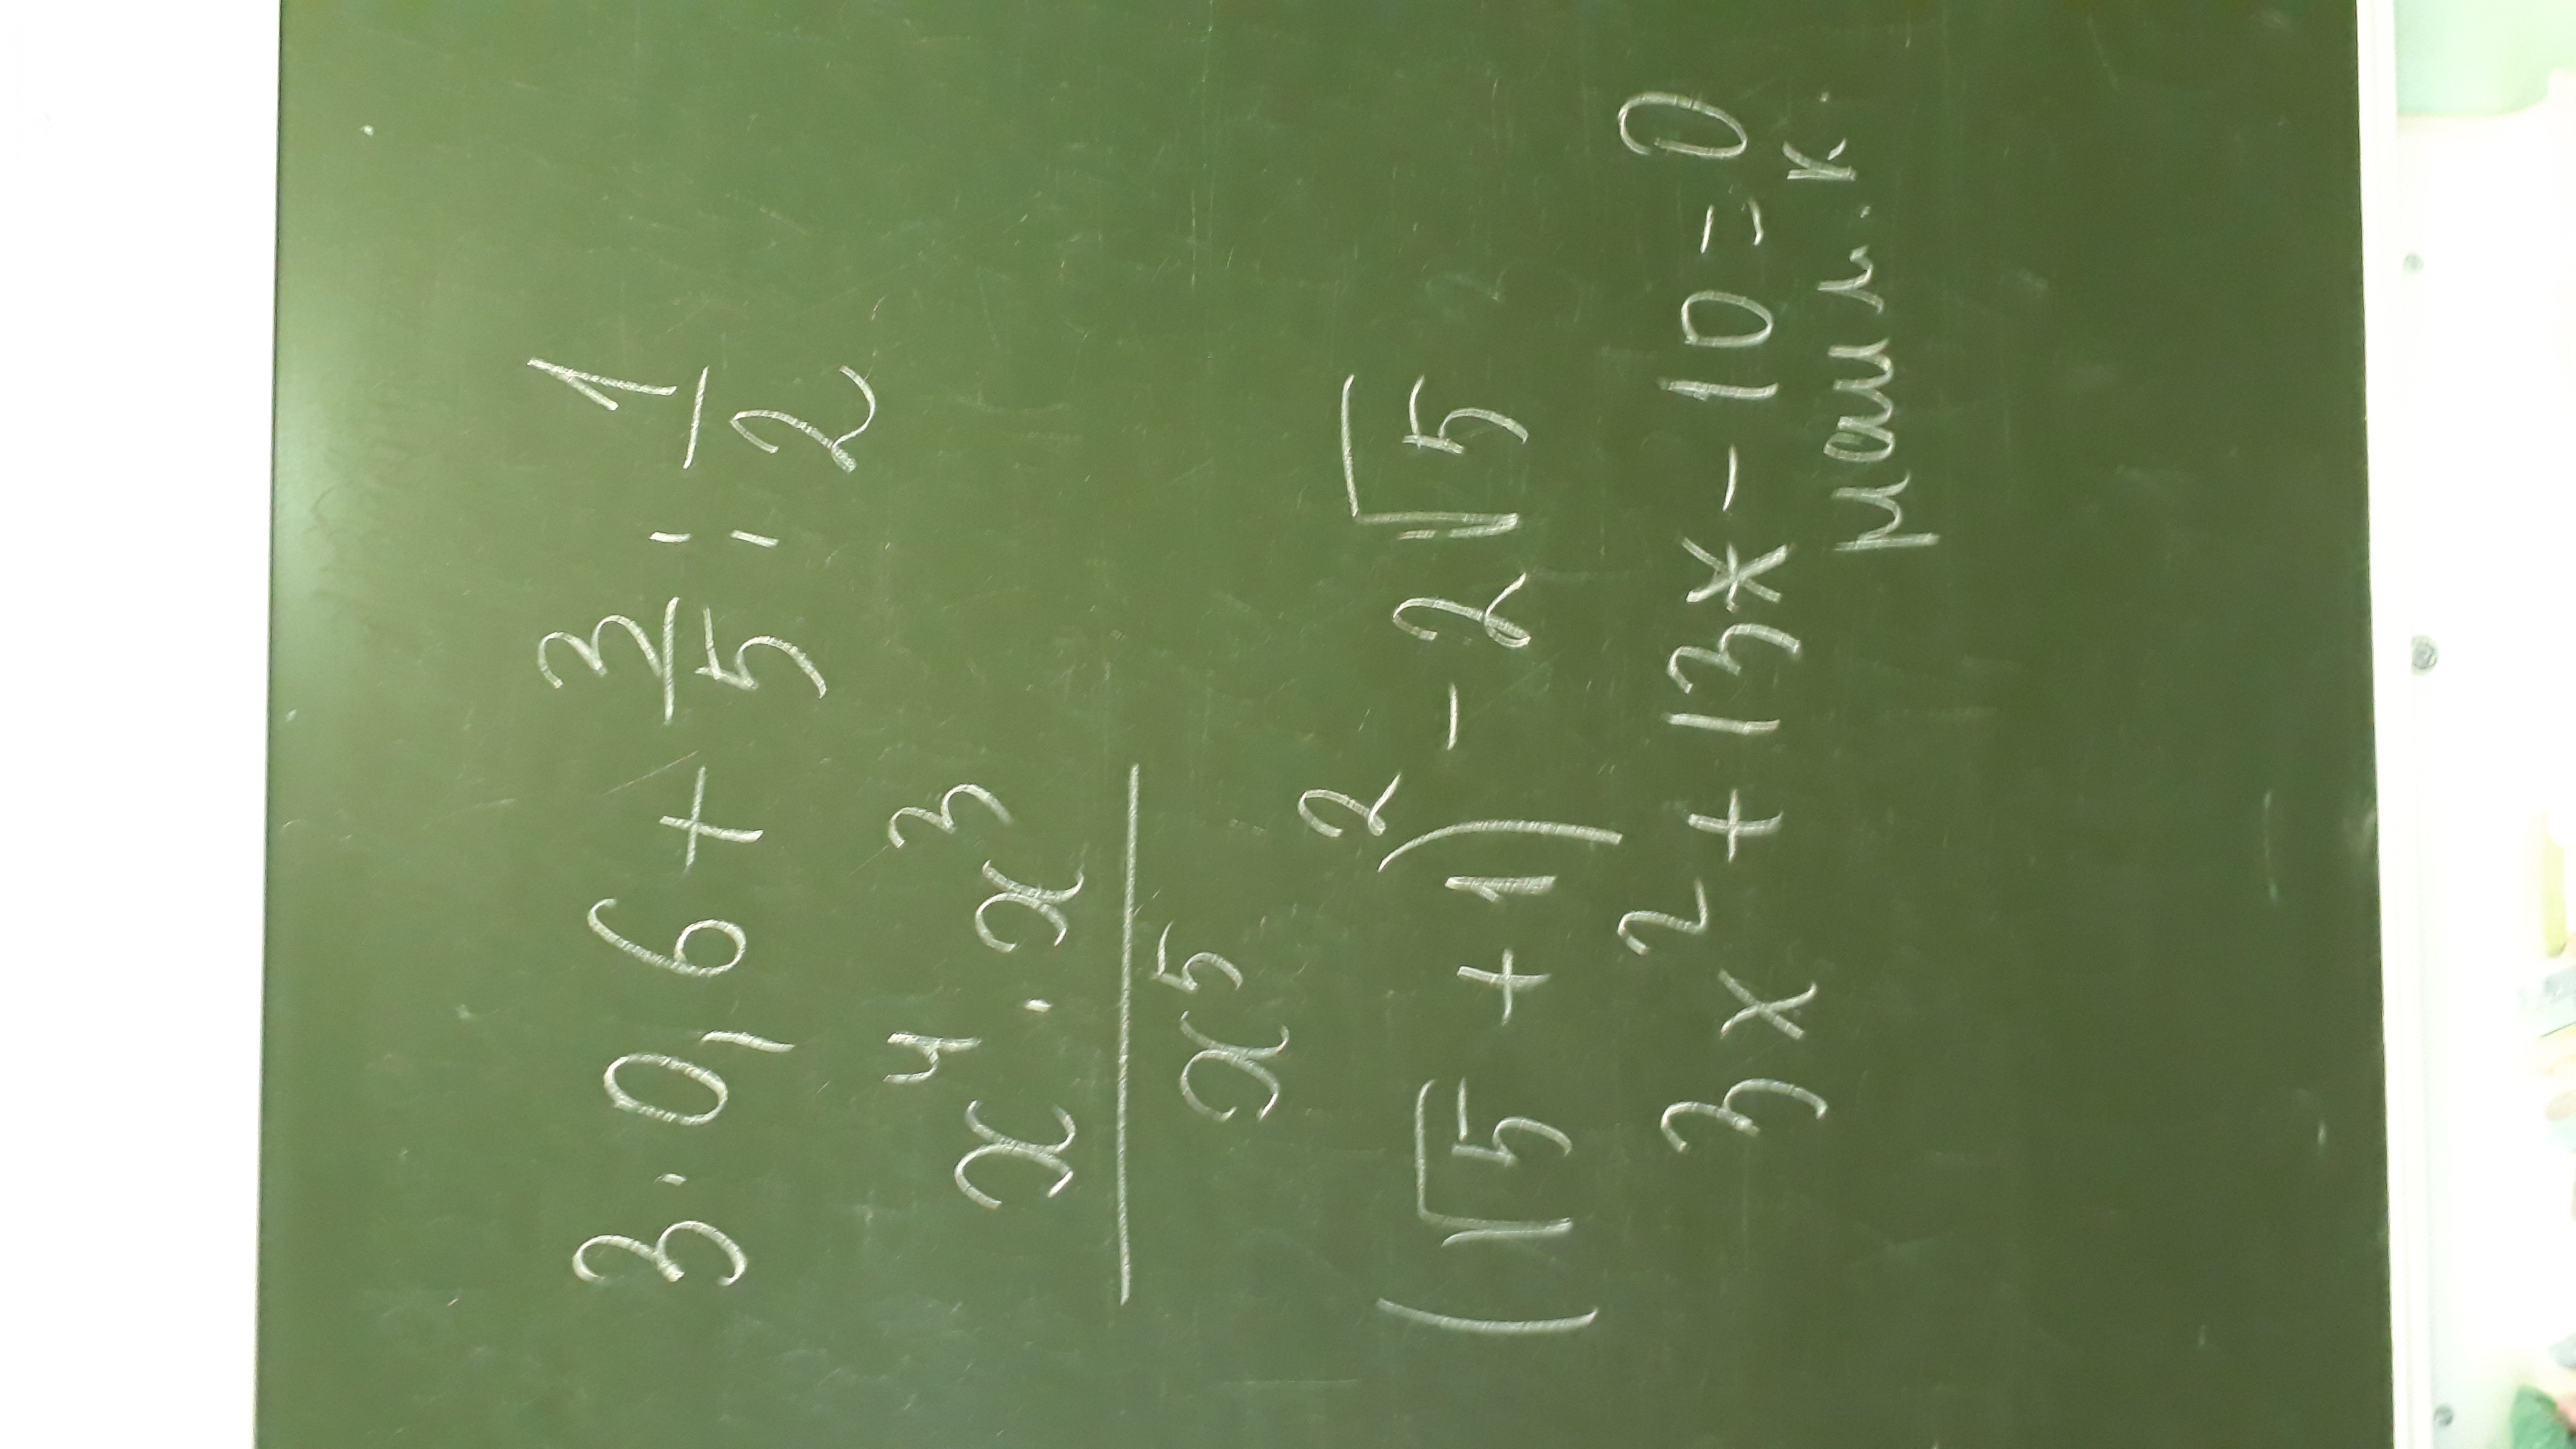 3·0,6 + 3/5 : 1/2
x⁴ · x³ / x⁵
(√5 + 1)² - 2√5
3x² + 13x - 10 = 0
наим. к.